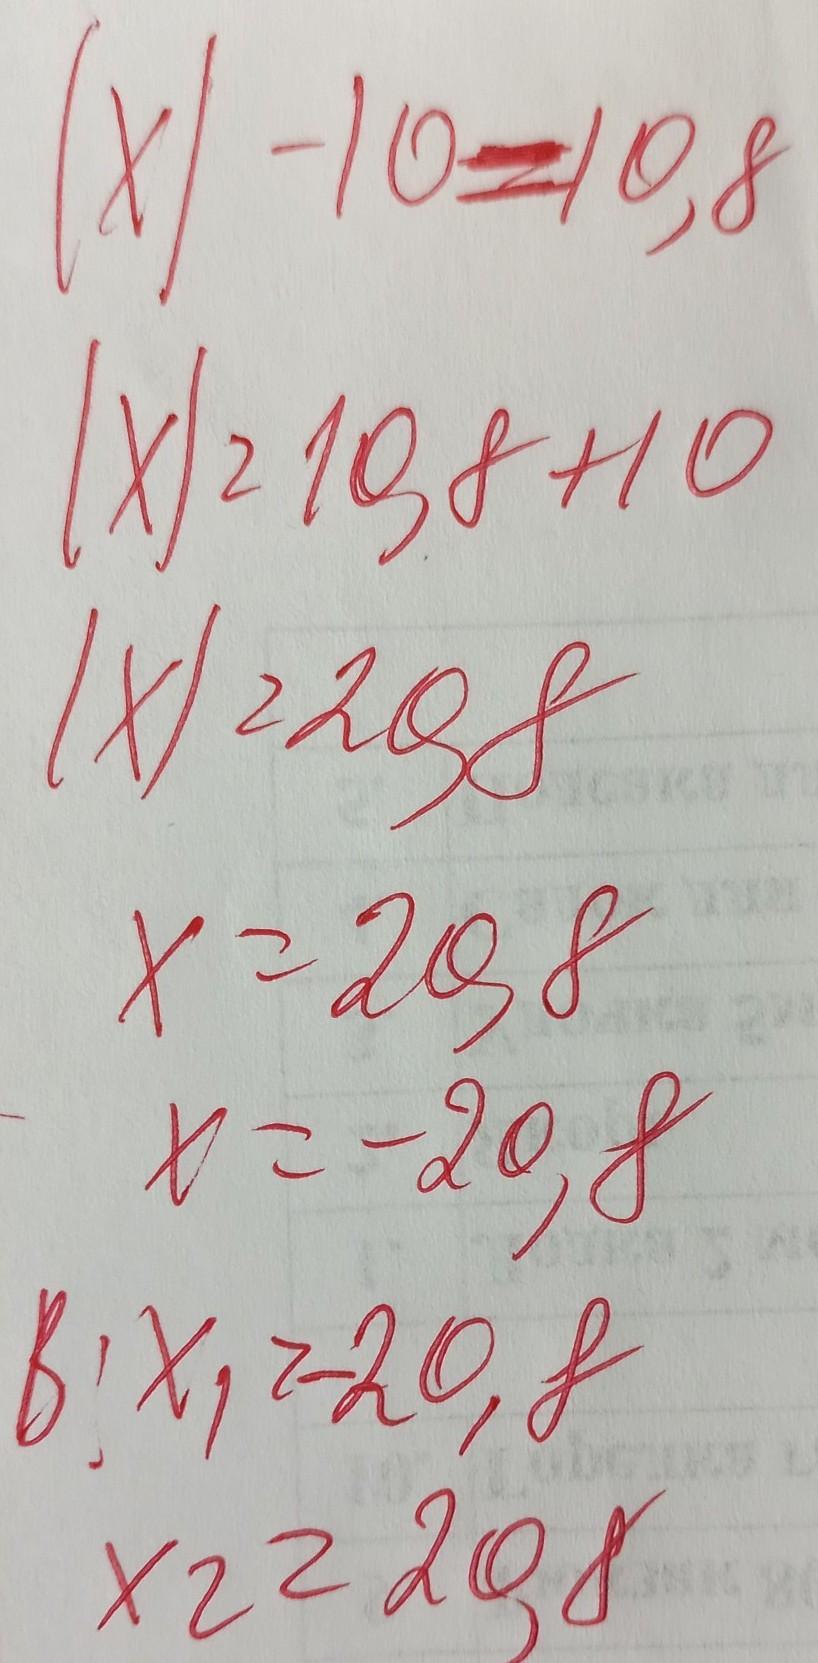 |x| - 10 = 10,8
|x| = 10,8 + 10
|x| = 20,8
x = 20,8
x = -20,8
В: x₁ = -20,8
x₂ = 20,8